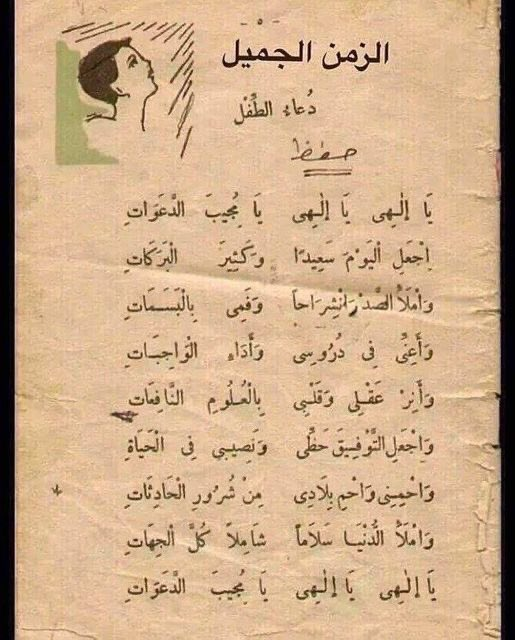 - ٥ -
الزمن الجميل
دُعاءُ الطِّفْل
حفظ
يَا إِلٰهِى يَا إِلٰهِى يَا مُجِيبَ الدَّعَوَاتِ
اِجْعَلِ الْيَوْمَ سَعِيدًا وَكَثِيرَ الْبَرَكَاتِ
وَامْلَأْ الصَّدْرَ انْشِرَاحاً وَفَمِى بِالْبَسَمَاتِ
وَأَعِنِّى فِى دُرُوسِى وَأَدَاءِ الْوَاجِبَاتِ
وَأَنِرْ عَقْلِى وَقَلْبِى بِالْعُلُومِ النَّافِعَاتِ
وَاجْعَلِ التَّوْفِيقَ حَظِّى وَنَصِيبِى فِى الْحَيَاةِ
وَاحْمِنِى وَاحْمِ بِلَادِى مِنْ شُرُورِ الْحَادِثَاتِ
وَامْلَأْ الدُّنْيَا سَلَاماً شَامِلاً كُلَّ الْجِهَاتِ
يَا إِلٰهِى يَا إِلٰهِى يَا مُجِيبَ الدَّعَوَاتِ